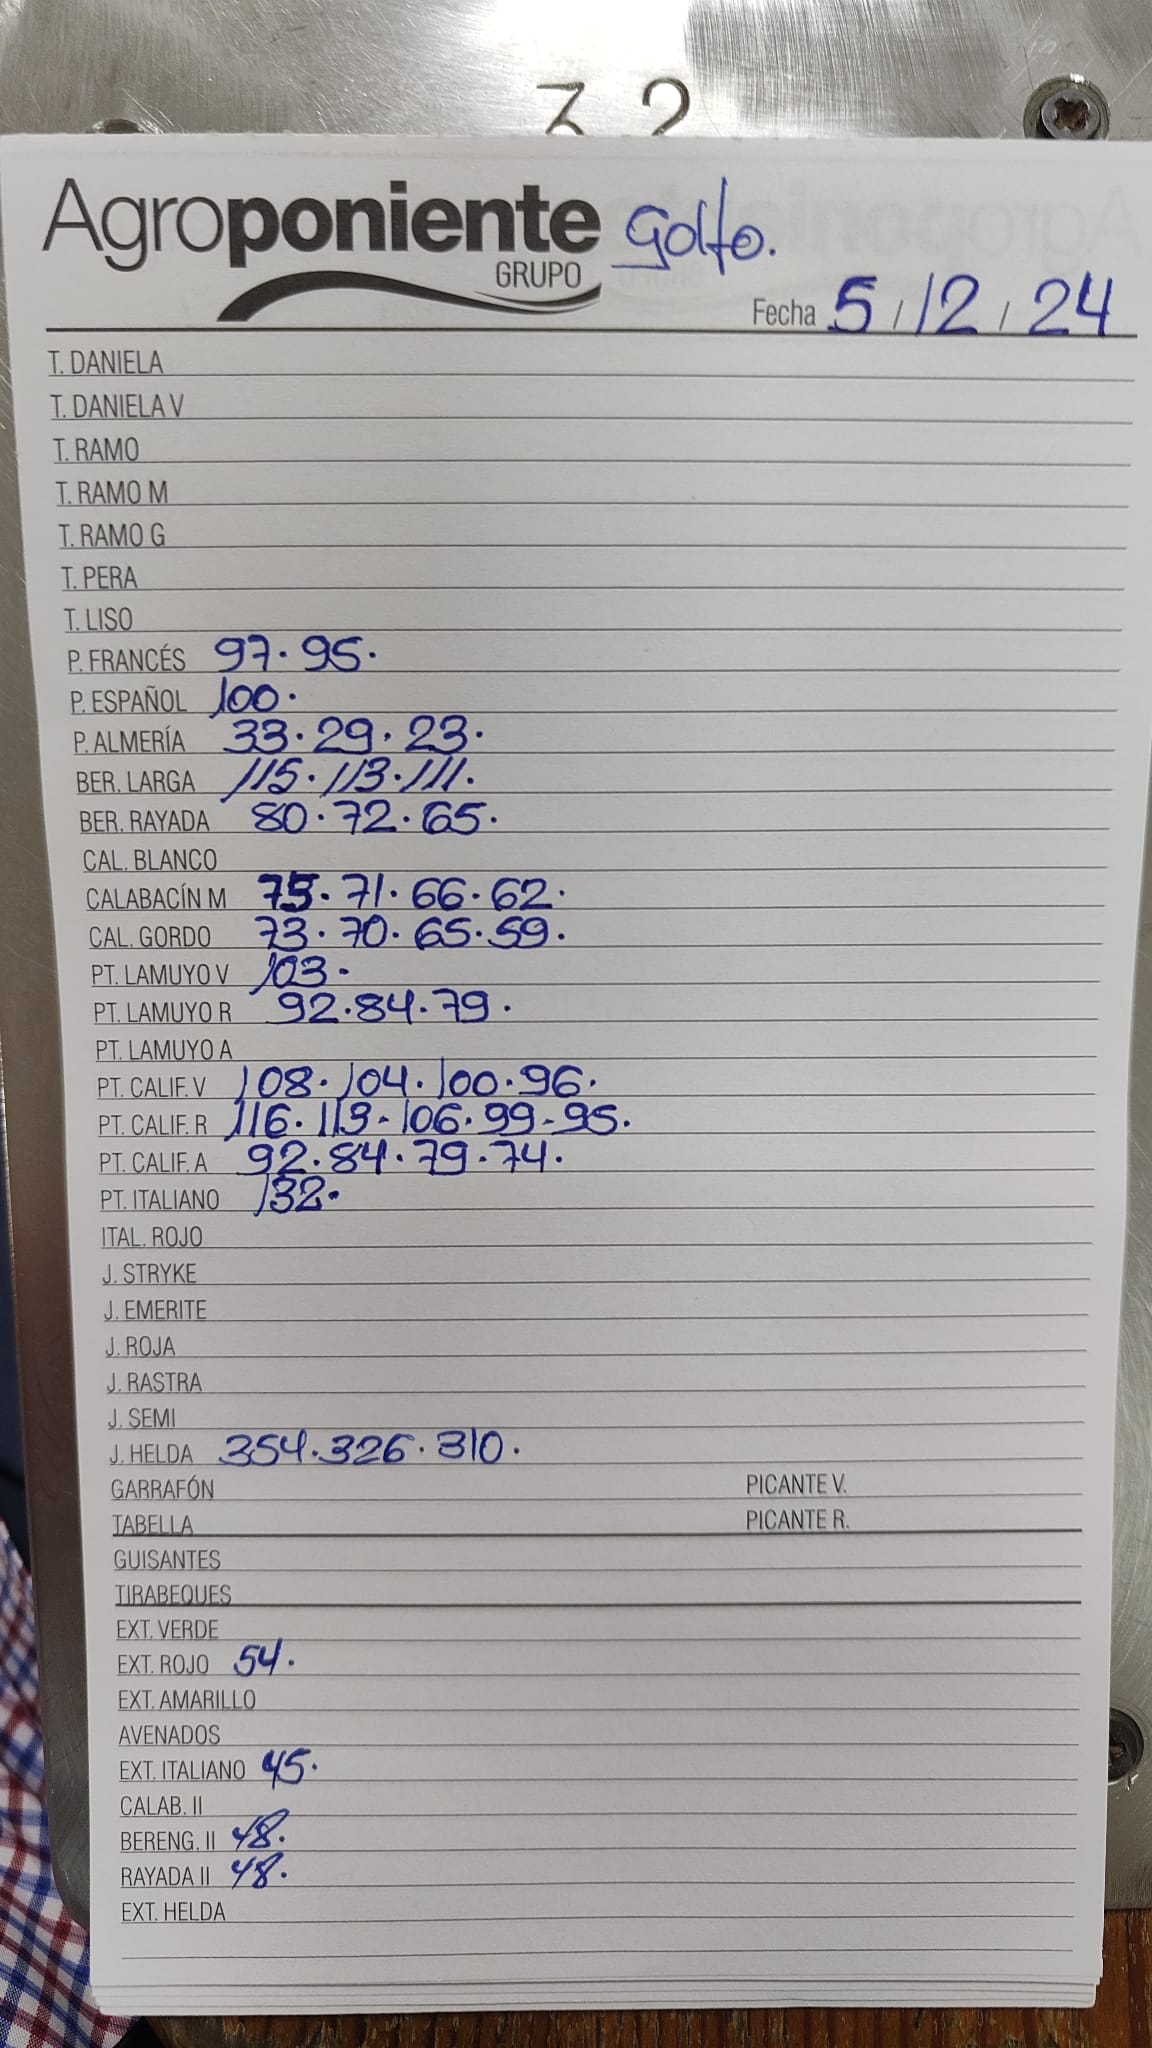 32
Agroponiente Golfo.
GRUPO
Fecha 5 / 12 / 24
T. DANIELA
T. DANIELA V
T. RAMO
T. RAMO M
T. RAMO G
T. PERA
T. LISO
P. FRANCÉS 97. 95.
P. ESPAÑOL 100.
P. ALMERÍA 33. 29. 23.
BER. LARGA 115. 113. 111.
BER. RAYADA 80. 72. 65.
CAL. BLANCO
CALABACÍN M 75. 71. 66. 62.
CAL. GORDO 73. 70. 65. 59.
PT. LAMUYO V 103.
PT. LAMUYO R 92. 84. 79.
PT. LAMUYO A
PT. CALIF. V 108. 104. 100. 96.
PT. CALIF. R 116. 113. 106. 99. 95.
PT. CALIF. A 92. 84. 79. 74.
PT. ITALIANO 132.
ITAL. ROJO
J. STRYKE
J. EMERITE
J. ROJA
J. RASTRA
J. SEMI
J. HELDA 354. 326. 310.
GARRAFÓN PICANTE V.
TABELLA PICANTE R.
GUISANTES
TIRABEQUES
EXT. VERDE
EXT. ROJO 54.
EXT. AMARILLO
AVENADOS
EXT. ITALIANO 45.
CALAB. II
BERENG. II 48.
RAYADA II 48.
EXT. HELDA